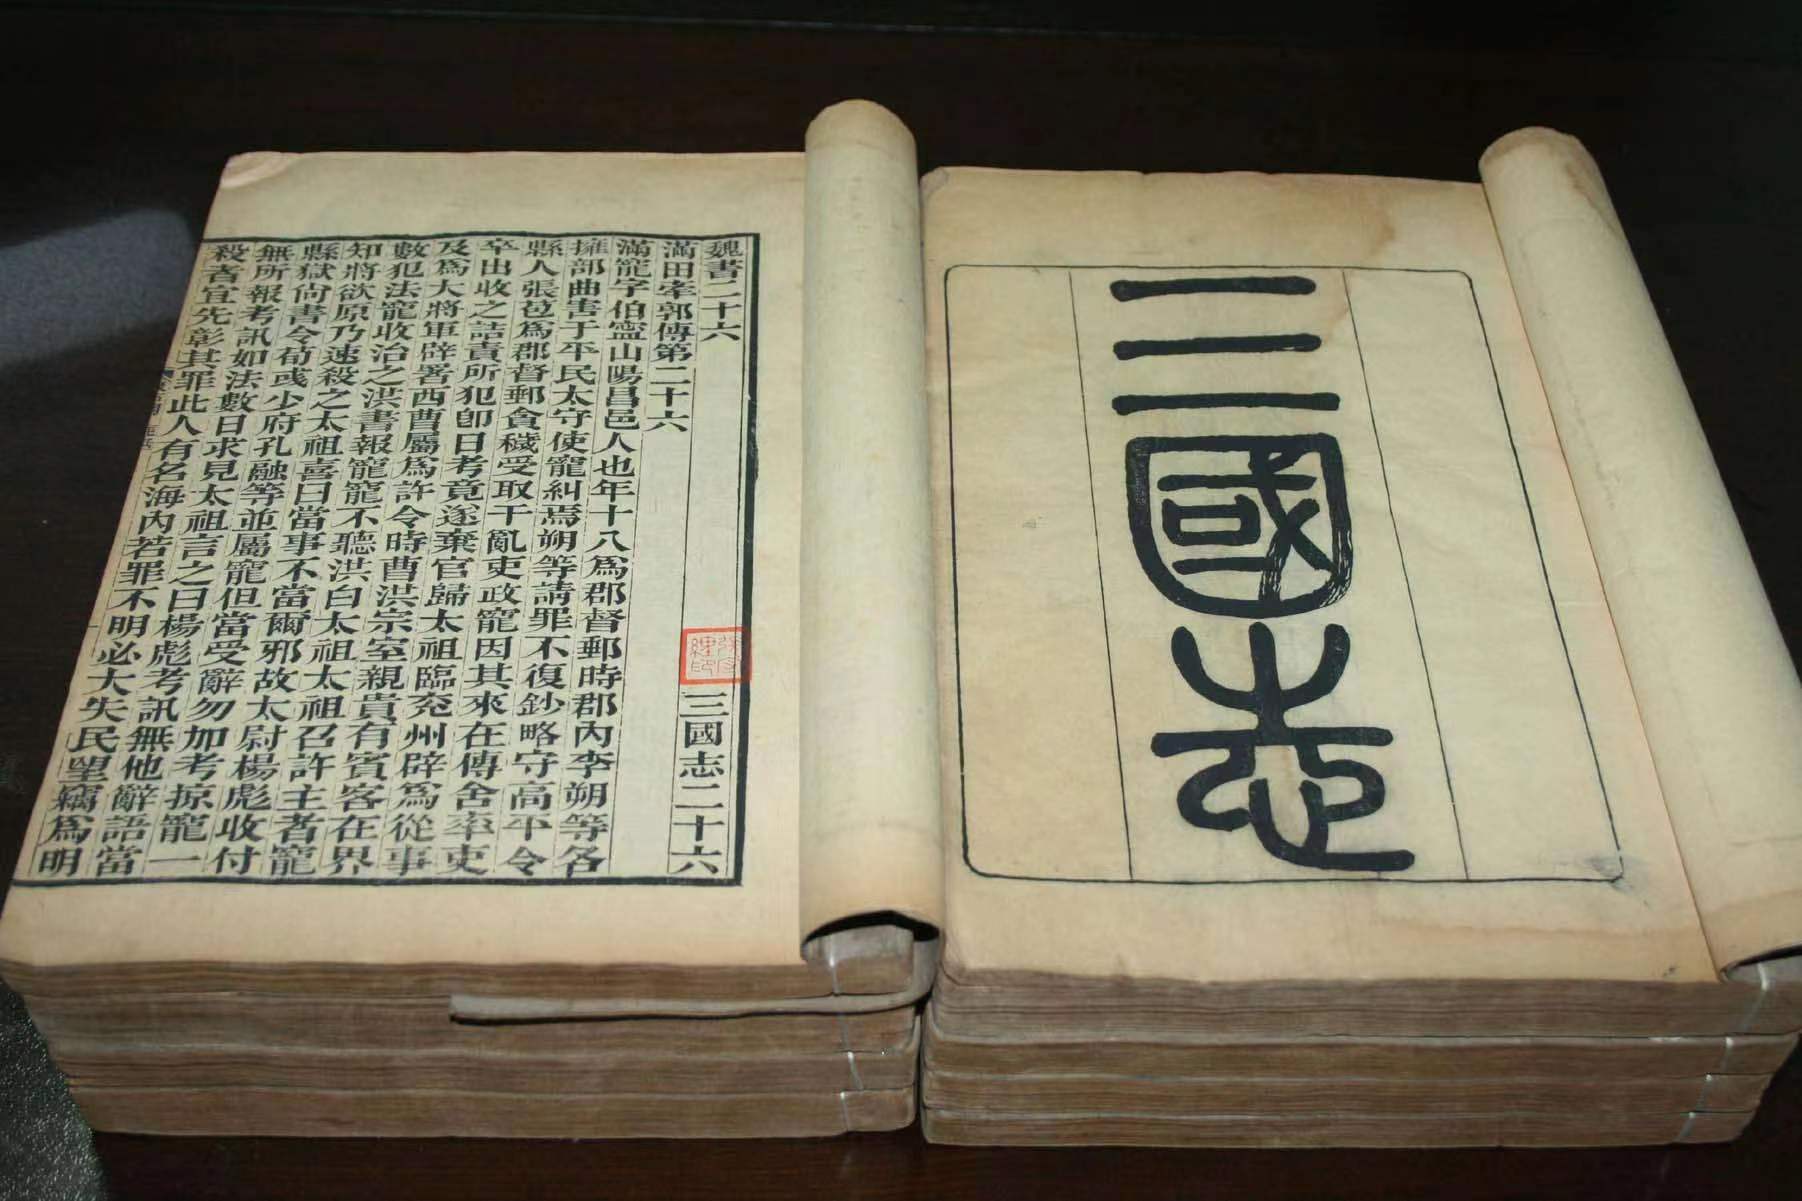 三國志
魏書二十六 三國志二十六
滿田牽郭傳第二十六
滿寵字伯寧山陽昌邑人也年十八爲郡督郵時郡內李朔等各
擁部曲害于平民太守使寵糾焉朔等請罪不復鈔略守高平令
縣人張苞爲郡督郵貪穢受取干亂吏政寵因其來在傳舍率吏
卒出收之詰責所犯卽日考竟遂棄官歸太祖臨兗州辟爲從事
及爲大將軍辟署西曹屬爲許令時曹洪宗室親貴有賓客在界
數犯法寵收治之洪書報寵寵不聽洪白太祖太祖召許主者寵
知將欲原乃速殺之太祖喜曰當事不當爾邪故太尉楊彪收付
縣獄尙書令荀彧少府孔融等並屬寵但當受辭勿加考掠寵一
無所報考訊如法數日求見太祖言之曰楊彪考訊無他辭語當
殺者宜先彰其罪此人有名海內若罪不明必大失民望竊爲明